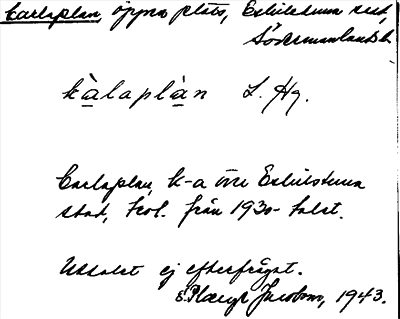 Carlaplan, öppen plats, Eskilstuna stad,
Södermanlands l.
kàlaplàn L. Hg.
Carlaplan, k-a över Eskilstuna
stad, trol. från 1930-talet.
Uttalet ej efterfrågat.
Jacobson, 1943.